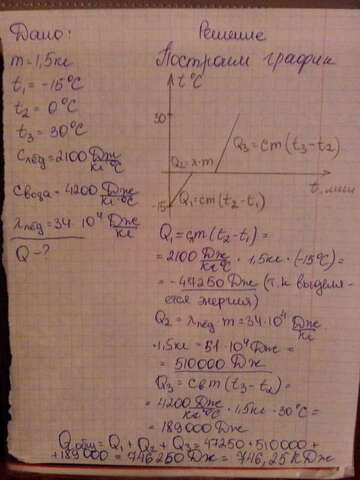 Дано:
m=1,5кг
t₁=-15°C
t₂=0°C
t₃=30°C
Cлёд=2100 Дж/кг°C
Cвода=4200 Дж/кг°C
λлёд=34·10⁴ Дж/кг
Q-?
Решение
Построим график
t°C
30
Q₃=cm(t₃-t₂)
Q₂=λ·m
t, мин
-15
Q₁=cm(t₂-t₁)
Q₁=cm(t₂-t₁)=
=2100 Дж/кг°C · 1,5кг·(-15°C)=
=-47250 Дж (т.к выделя-
ется энергия)
Q₂=λлёд·m=34·10⁴ Дж/кг
·1,5кг=51·10⁴Дж=
=510000 Дж
Q₃=cвm(t₃-t₂)=
=4200 Дж/кг°C · 1,5кг·30°C=
=189000 Дж
Qобщ=Q₁+Q₂+Q₃=47250+510000+
+189000=746250Дж=746,25КДж